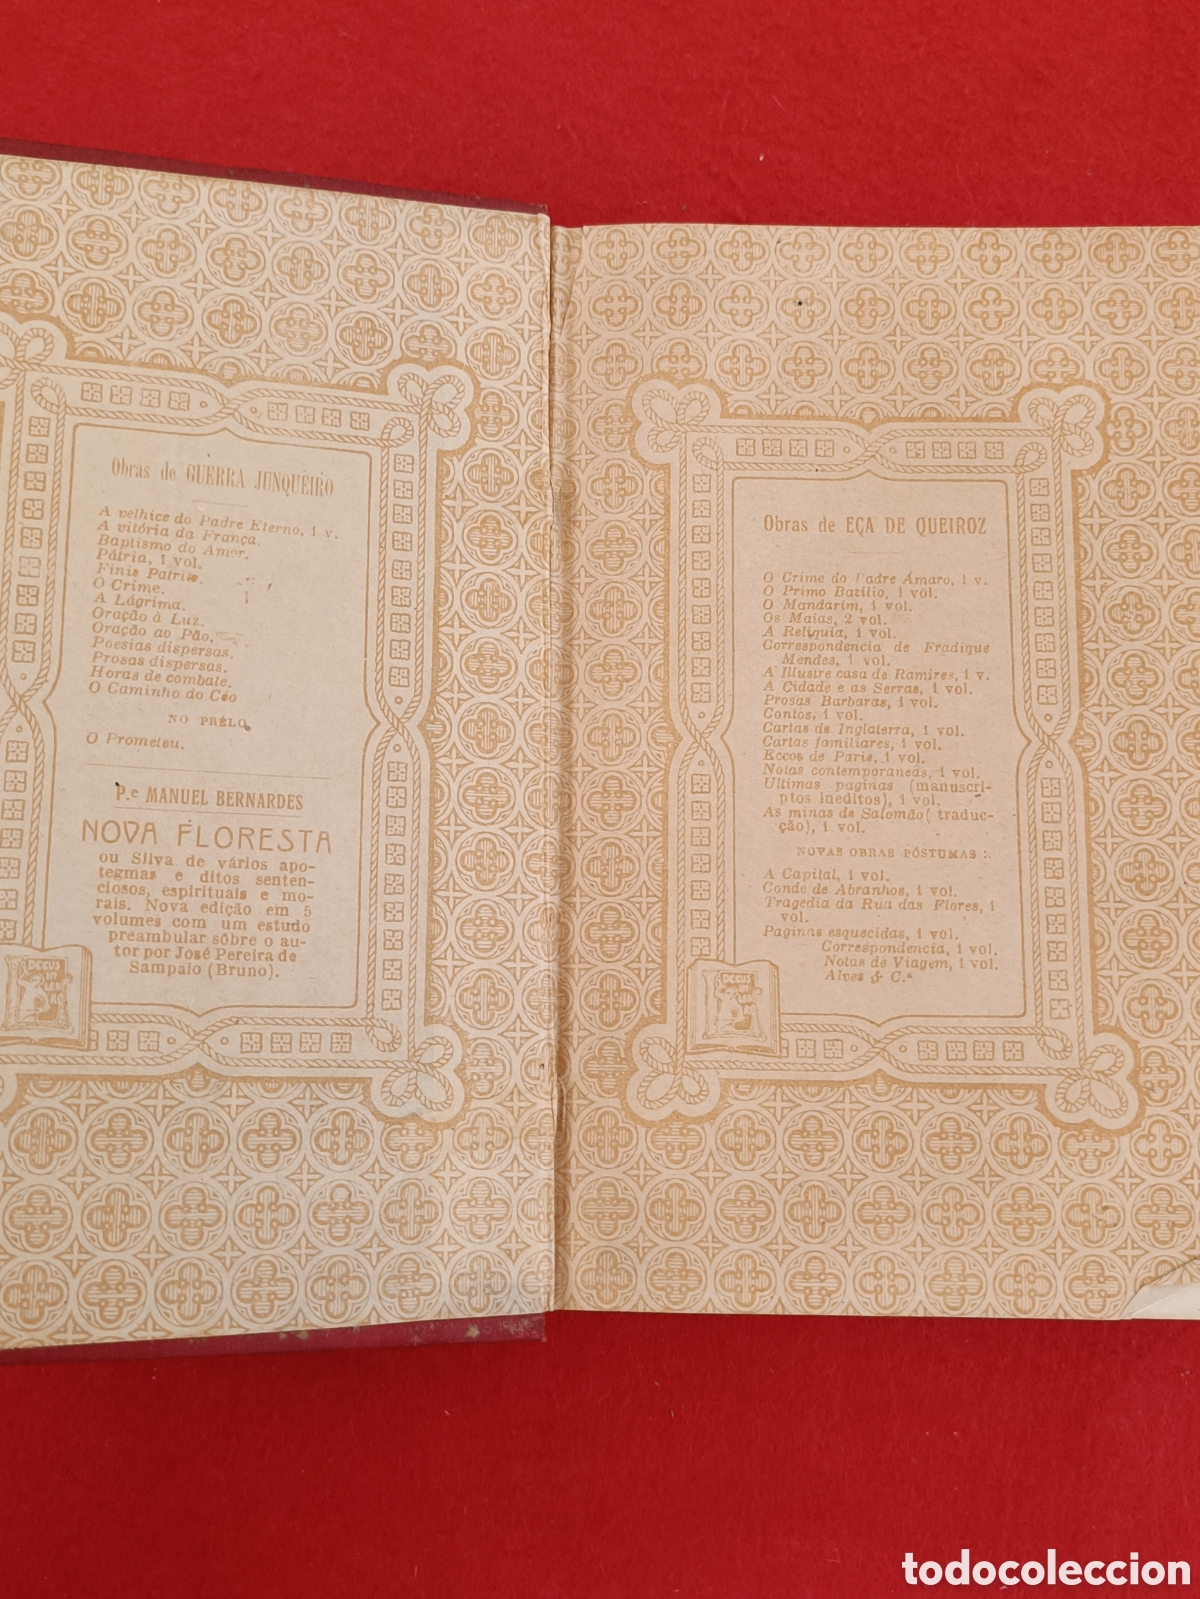 Obras de GUERRA JUNQUEIRO
A velhice do Padre Eterno, 1 v.
A vitória da França.
Baptismo do Amor.
Pátria, 1 vol.
Finis Patriæ.
O Crime.
A Lágrima.
Oração à Luz.
Oração ao Pão.
Poesias dispersas.
Prosas dispersas.
Horas de combate.
O Caminho do Céo
NO PRÉLO
O Prometeu.
P.e MANUEL BERNARDES
NOVA FLORESTA
ou Silva de vários apo-
tegmas e ditos senten-
ciosos, espirituais e mo-
rais. Nova edição em 5
volumes com um estudo
preambular sôbre o au-
tor por José Pereira de
Sampaio (Bruno).
Obras de EÇA DE QUEIROZ
O Crime do Padre Ámaro, 1 v.
O Primo Bazilio, 1 vol.
O Mandarim, 1 vol.
Os Maias, 2 vol.
A Reliquia, 1 vol.
Correspondencia de Fradique
Mendes, 1 vol.
A Illustre casa de Ramires, 1 v.
A Cidade e as Serras, 1 vol.
Prosas Barbaras, 1 vol.
Contos, 1 vol.
Cartas de Inglaterra, 1 vol.
Cartas familiares, 1 vol.
Eccos de Paris, 1 vol.
Notas contemporaneas, 1 vol.
Ultimas paginas (manuscri-
ptos ineditos), 1 vol.
As minas de Salomão ( traduc-
ção), 1 vol.
NOVAS OBRAS PÓSTUMAS :
A Capital, 1 vol.
Conde de Abranhos, 1 vol.
Tragedia da Rua das Flores, 1
vol.
Paginas esquecidas, 1 vol.
Correspondencia, 1 vol.
Notas de Viagem, 1 vol.
Alves & C.ª
todocoleccion